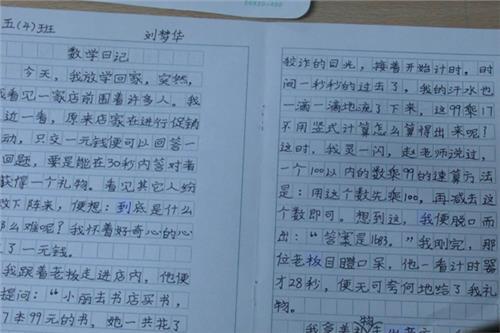 五(4)班 刘梦华
数学日记
今天，我放学回家，突然，
我看见一家店前围着许多人。我
近一看，原来店家在进行促销
动，只交一元钱便可以回答一
问题，要是能在30秒内答对者
获得一个礼物。看见其它人纷
败下阵来，便想：到底是什么
那么难呢？我怀着好奇心的心
了一元钱。
我跟着老板走进店内，他便
提问：“小丽去书店买书，
17本99元的书。她一共花了
狡诈的目光，接着开始计时。时
间一秒秒的过去了，我的汗水也
一滴一滴地流了下来，这99乘17
不用竖式计算怎么算得出来呢？
这时，我灵一闪，赵老师说过，
一个100以内的数乘99的速算方法
是：用这个数先乘100，再减去这
个数即可。想到这，我便脱口而
出：“答案是1683。”我刚完，那
位老板目瞪口呆，他一看计时器
才28秒，便无可奈何地给了我礼
物。